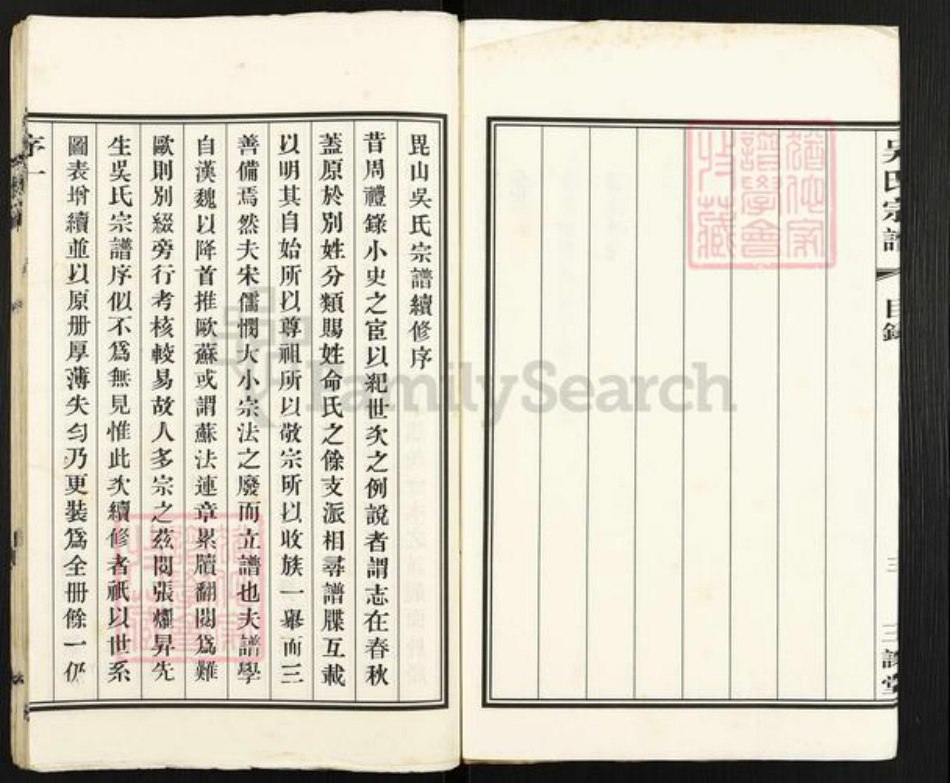 吳氏宗譜
目錄
三
三讓堂
猶他家譜學會收藏
毘山吳氏宗譜續修序
昔周禮錄小史之宦以紀世次之例說者謂志在春秋
蓋原於別姓分類賜姓命氏之餘支派相尋譜牒互載
以明其自始所以尊祖所以敬宗所以收族一舉而三
善備焉然夫宋儒憫大小宗法之廢而立譜也夫譜學
自漢魏以降首推歐蘇或謂蘇法連章累牘翻閱為難
歐則別綴旁行考核較易故人多宗之茲閱張燿昇先
生吳氏宗譜序似不為無見惟此次續修者祇以世系
圖表增續並以原册厚薄失勻乃更裝為全册餘一仍
序一
猶他家譜學會收藏
FamilySearch